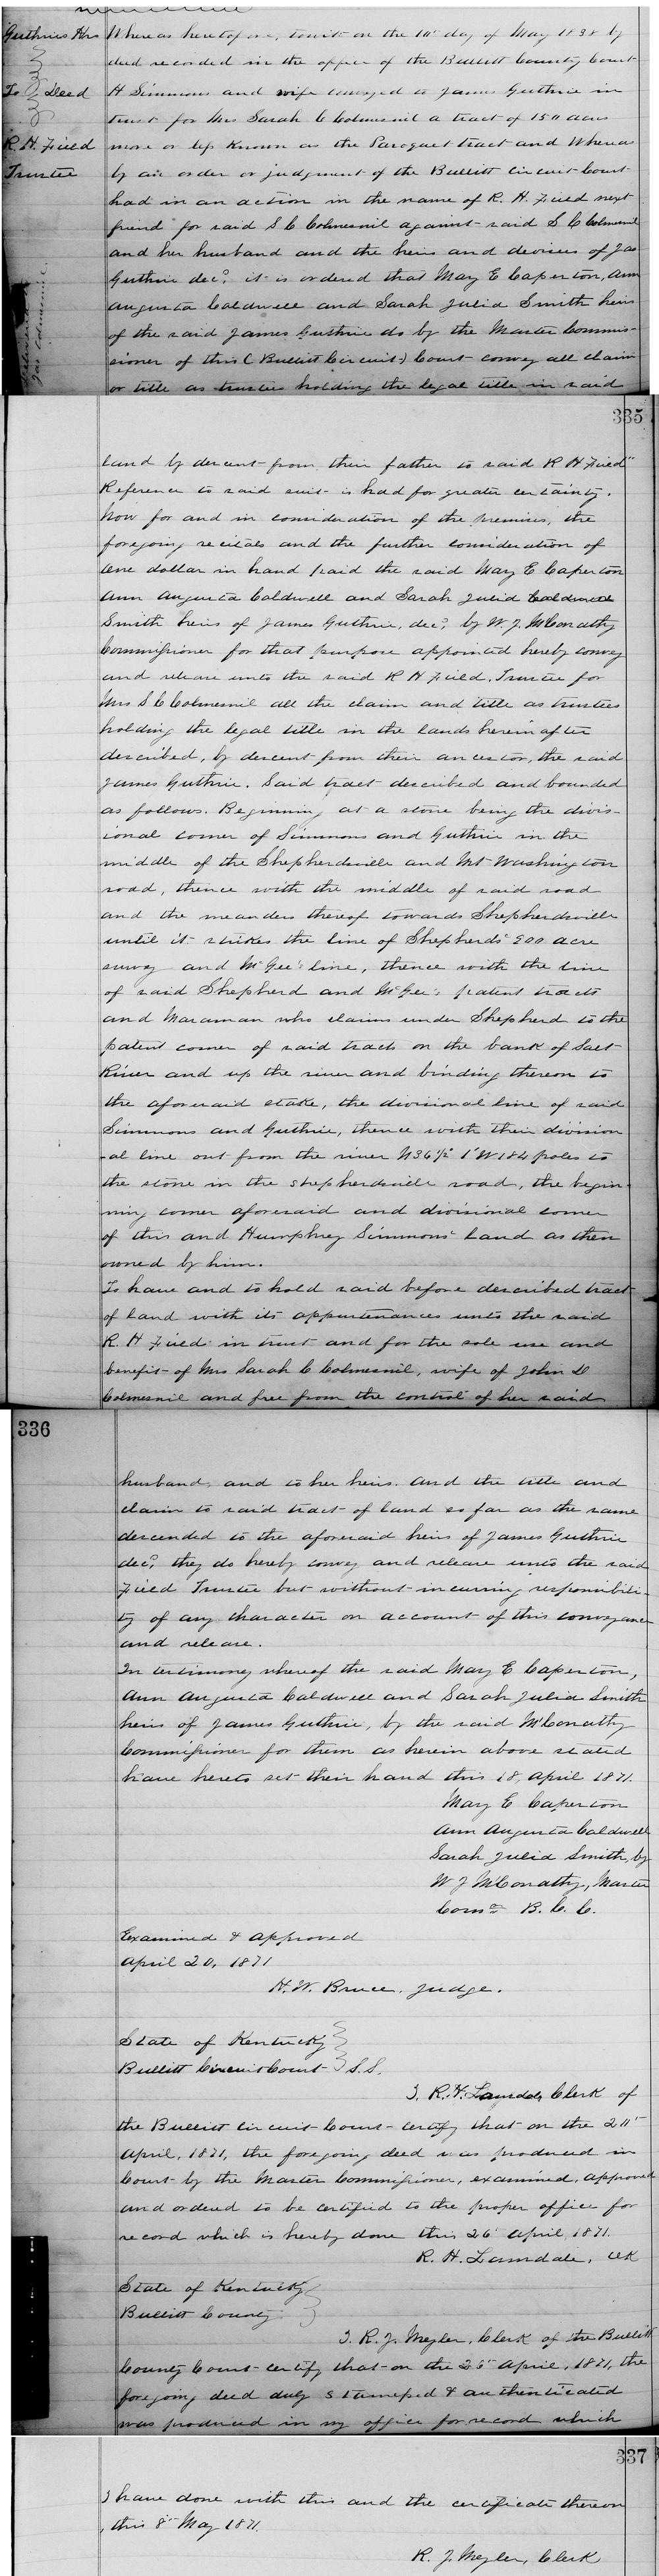 Guthries Hrs
To } Deed
R. H. Field
Trustee
Whereas heretofore, towit on the 10" day of May 1838 by
deed recorded in the office of the Bullitt County Court
H Simmons and wife conveyed to James Guthrie in
trust for Mrs Sarah C Colmesnil a tract of 150 acres
more or less known as the Paroquet tract and Whereas
by an order or judgment of the Bullitt Circuit Court
had in an action in the name of R. H. Field next
friend for said S C Colmesnil against said S C Colmesnil
and her husband and the heirs and devisees of Jas
Guthrie decd, it is ordered that Mary E Caperton, Ann
Augusta Caldwell and Sarah Julia Smith heirs
of the said James Guthrie do by the Master Commis-
sioner of this (Bullitt Circuit) Court convey all claim
or title as trustees holding the legal title in said
335
land by descent from their father to said R H Field"
Reference to said suit is had for greater certainty.
Now for and in consideration of the premises, the
foregoing recitals and the further consideration of
one dollar in hand paid the said Mary E Caperton
Ann Augusta Caldwell and Sarah Julia Caldwell
Smith heirs of James Guthrie, decd, by W. J. McConathy
Commissioner for that purpose appointed hereby convey
and release unto the said R H Field, Trustee for
Mrs S C Colmesnil all the claim and title as trustees
holding the legal title in the lands herein after
described, by descent from their ancestor, the said
James Guthrie. Said tract described and bounded
as follows. Beginning at a stone being the divis-
ional corner of Simmons and Guthrie in the
middle of the Shepherdsville and Mt Washington
road, thence with the middle of said road
and the meanders thereof towards Shepherdsville
until it strikes the line of Shepherds 900 acre
survey and McGee's line, thence with the line
of said Shepherd and McGee's patent tracts
and Maraman who claims under Shepherd to the
patent corner of said tracts on the bank of Salt
River and up the river and binding thereon to
the aforesaid stake, the divisional line of said
Simmons and Guthrie, thence with their division
-al line out from the river N36½ 1°W184 poles to
the stone in the Shepherdsville road, the begin-
ning corner aforesaid and divisional corner
of this and Humphrey Simmons' land as then
owned by him.
To have and to hold said before described tract
of land with its appurtenances unto the said
R. H Field in trust and for the sole use and
benefit of Mrs Sarah C Colmesnil, wife of John D
Colmesnil and free from the control of her said
336
husband, and to her heirs. And the title and
claim to said tract of land so far as the same
descended to the aforesaid heirs of James Guthrie
decd, they do hereby convey and release unto the said
Field Trustee but without incurring responsibili-
ty of any character on account of this conveyance
and release.
In testimony whereof the said Mary E Caperton,
Ann Augusta Caldwell and Sarah Julia Smith
heirs of James Guthrie, by the said McConathy
Commissioner for them as herein above stated
have hereto set their hand this 18 April 1871.
Mary E Caperton
Ann Augusta Caldwell
Sarah Julia Smith, by
W J McConathy, Master
Comr B. C. C.
Examined & approved
April 20, 1871
H. W. Bruce. Judge.
State of Kentucky
Bullitt Circuit Court } S.S.
I. R. H. Lansdale, Clerk of
the Bullitt Circuit Court certify that on the 20"
April, 1871, the foregoing deed was produced in
Court by the Master Commissioner, examined, approved
and ordered to be certified to the proper office for
record which is hereby done this 26 April, 1871.
R. H. Lansdale, Clk
State of Kentucky
Bullitt County }
I. R. J. Meyler, Clerk of the Bullitt
County Court certify that on the 26" April, 1871, the
foregoing deed duly stamped & authenticated
was produced in my office for record which
337
I have done with this and the certificate thereon
, this 8" May 1871.
R. J. Meyler, Clerk